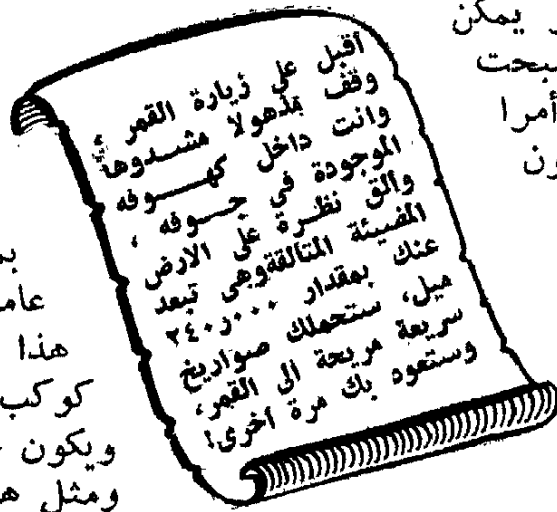 أقبل على زيارة القمر ،
وقف مذهولا مشدوها
وانت داخل كهوفه
الموجودة في جوفه ،
والق نظرة على الارض
المضيئة المتالقة وهى تبعد
عنك بمقدار ٢٤٠٫٠٠٠
ميل، ستحملك صواريخ
سريعة مريحة الى القمر،
وستعود بك مرة أخرى!
يمكن
أمرا
هذا
كوكب
ويكون
ومثل